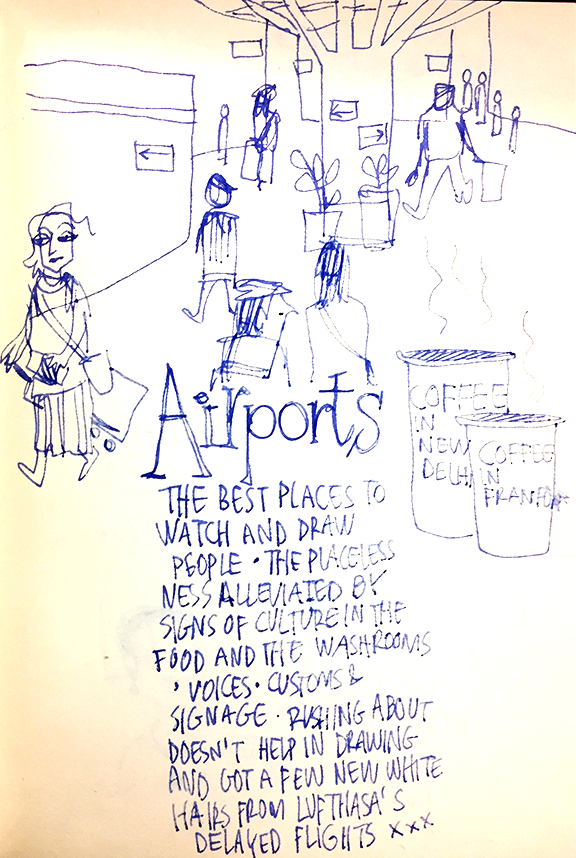 COFFEE
IN
NEW
DELHI
COFFEE
IN
FRANFORT
Airports
THE BEST PLACES TO
WATCH AND DRAW
PEOPLE · THE PLACELESS
NESS ALLEVIATED BY
SIGNS OF CULTURE IN THE
FOOD AND THE WASHROOMS
· VOICES · CUSTOMS &
SIGNAGE · RUSHING ABOUT
DOESN'T HELP IN DRAWING
AND GOT A FEW NEW WHITE
HAIRS FROM LUFTHASA'S
DELAYED FLIGHTS xxx